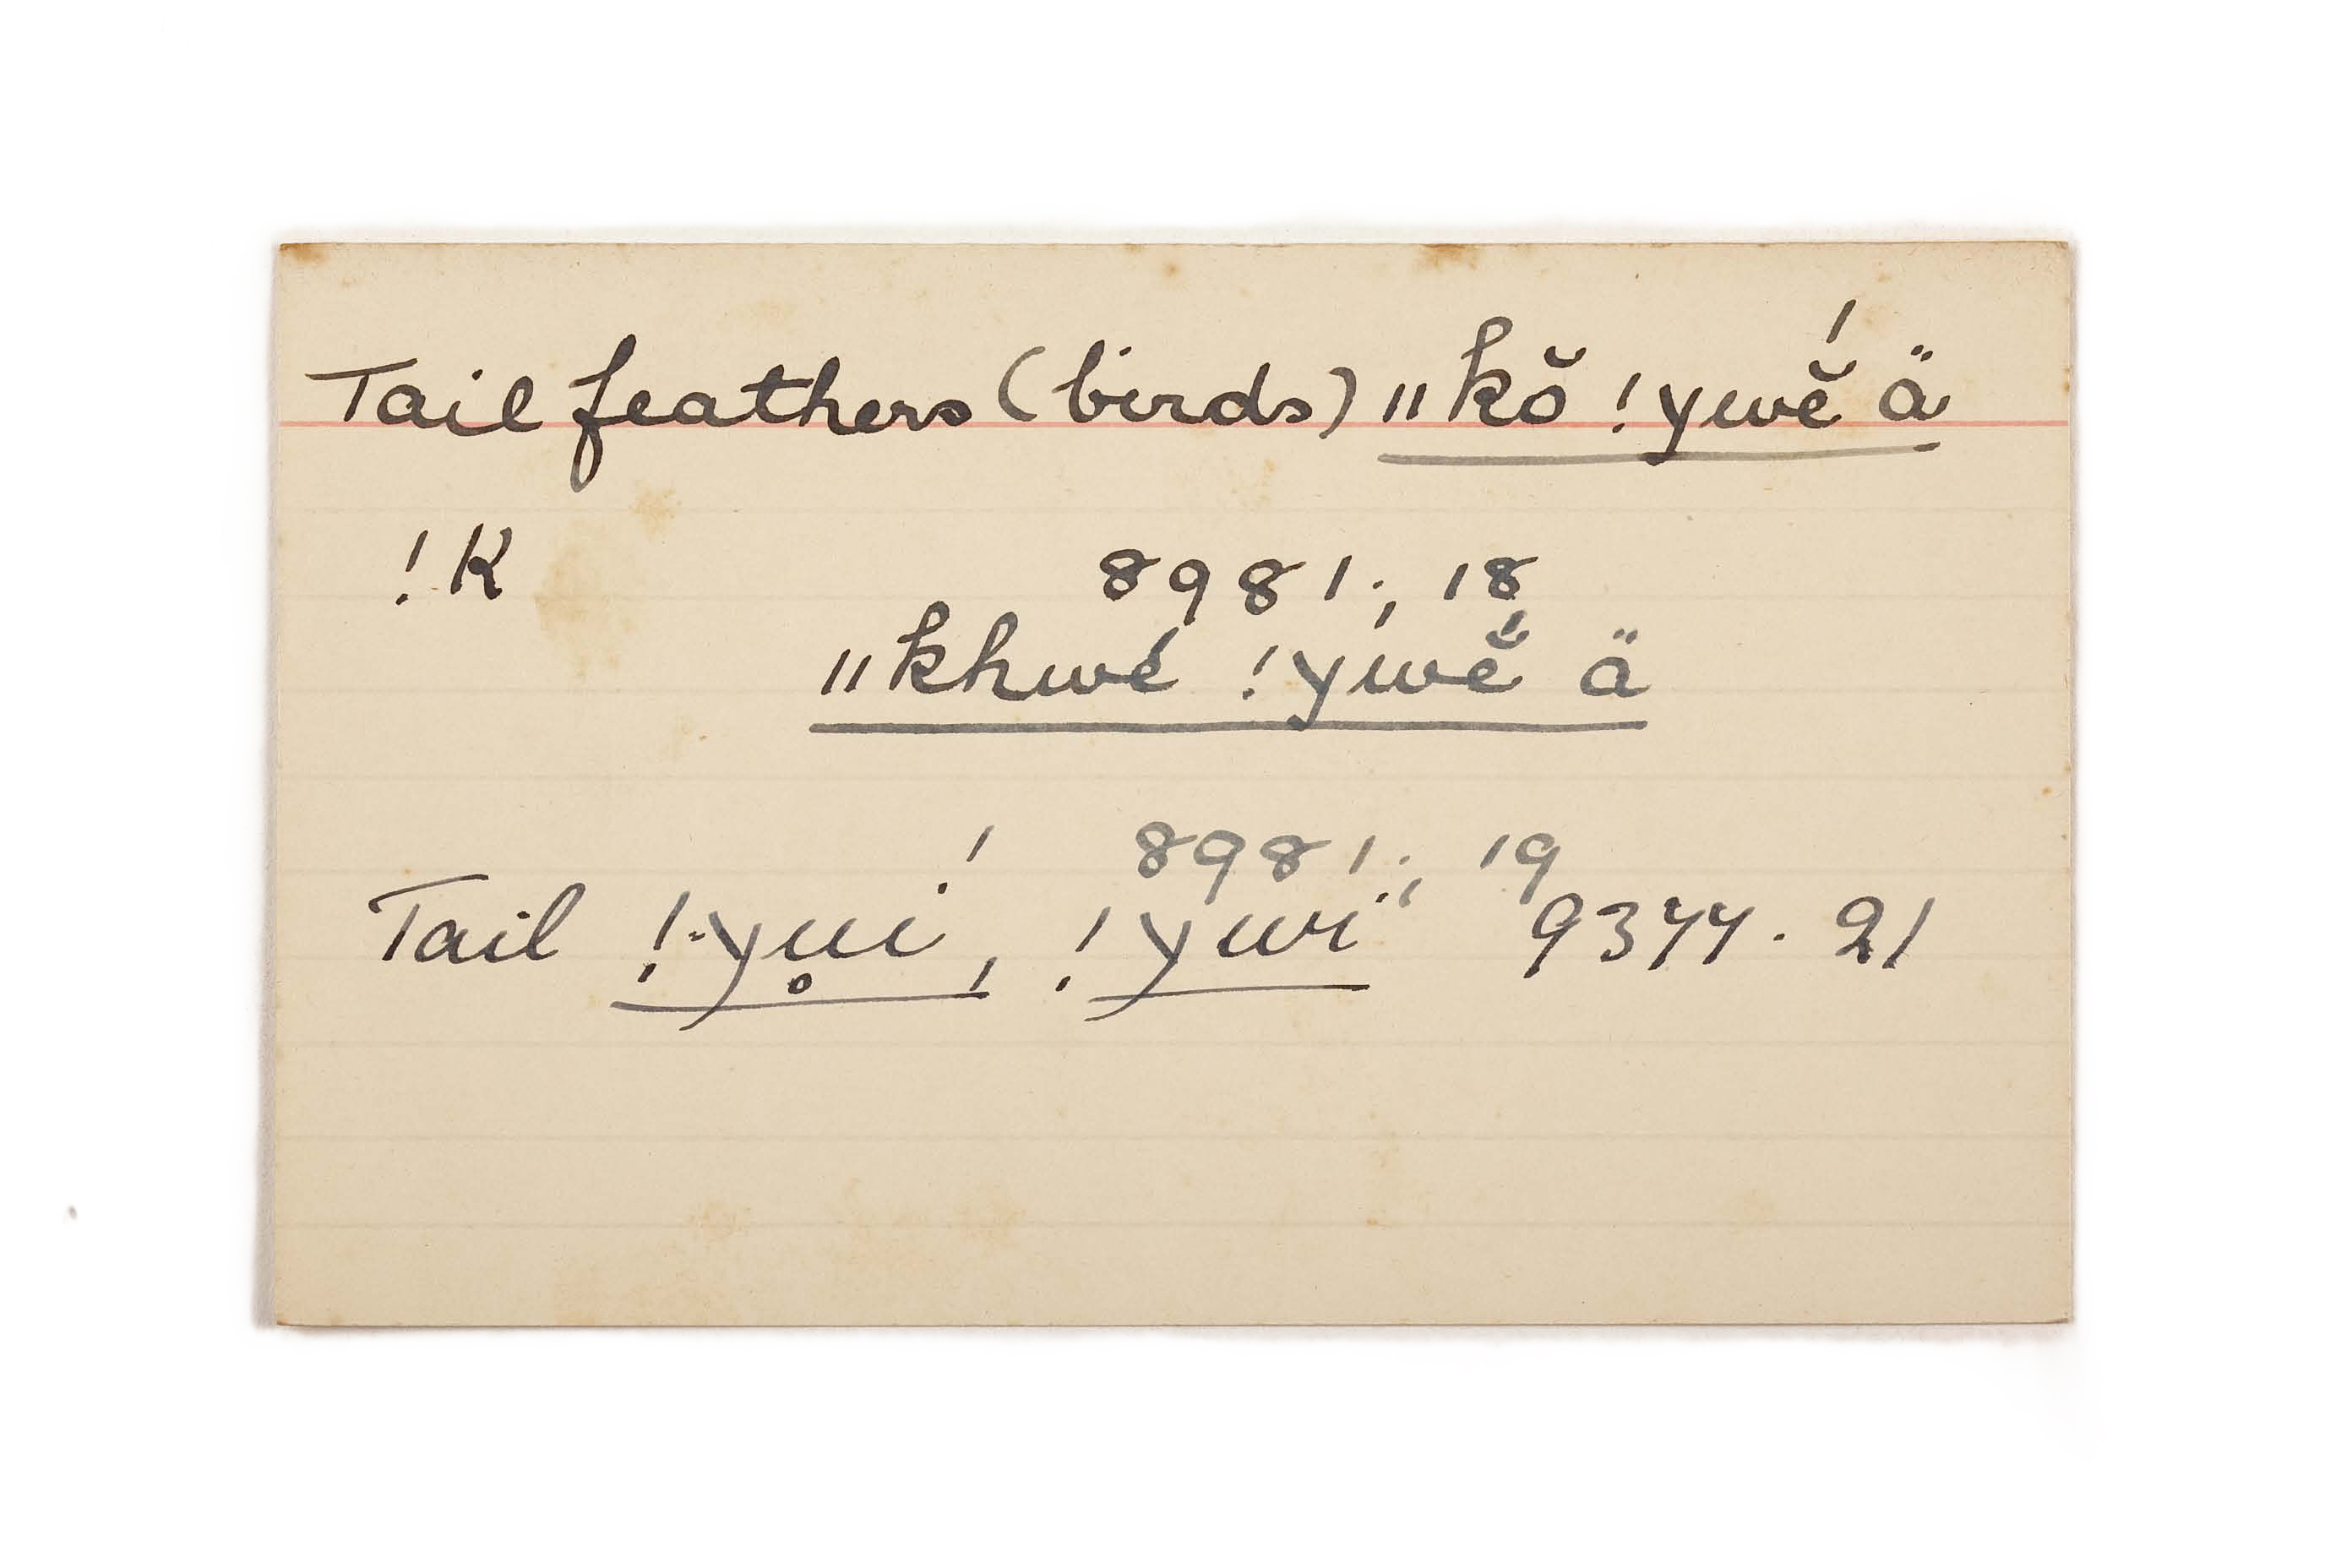 Tail feathers (birds) ǁkŏ !ywĕ́ ä
!K 8981; 18
ǁkhwé !ywĕ́ ä
8981; 19
Tail !yu̥í, !ywï 9344. 21